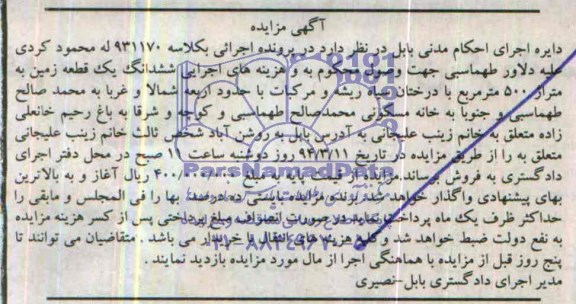 آگهی مزایده
دایره اجرای احکام مدنی بابل در نظر دارد در پرونده اجرائی بکلاسه ۹۳۱۱۷۰ له محمود کردی
علیه دلاور طهماسبی جهت وصول محکوم به و هزینه های اجرایی ششدانگ یک قطعه زمین به
متراژ ۵۰۰ مترمربع با درختان سیاه ریشه و مرکبات با حدود اربعه شمالا و غربا به محمد صالح
طهماسبی و جنوبا به خانه مسکونی محمدصالح طهماسبی و کوچه و شرقا به باغ رحیم خانعلی
زاده متعلق به خانم زینب علیجانی به آدرس بابل به روشن آباد شخص ثالث خانم زینب علیجانی
متعلق به را از طریق مزایده در تاریخ ۹۴/۳/۱۱ روز دوشنبه ساعت ۱۱ صبح در محل دفتر اجرای
دادگستری به فروش برساند مزایده از قیمت پایه به مبلغ ریال آغاز و به بالاترین
بهای پیشنهادی واگذار خواهد شد برنده مزایده بایستی ده درصد بها را فی المجلس و مابقی را
حداکثر ظرف یک ماه پرداخت نماید در صورت انصراف مبلغ پرداختی پس از کسر هزینه مزایده
به نفع دولت ضبط خواهد شد و کلیه هزینه های انتقال با خریدار می باشد . متقاضیان می توانند تا
پنج روز قبل از مزایده با هماهنگی اجرا از مال مورد مزایده بازدید نمایند .
مدیر اجرای دادگستری بابل-نصیری
ParsNamadData